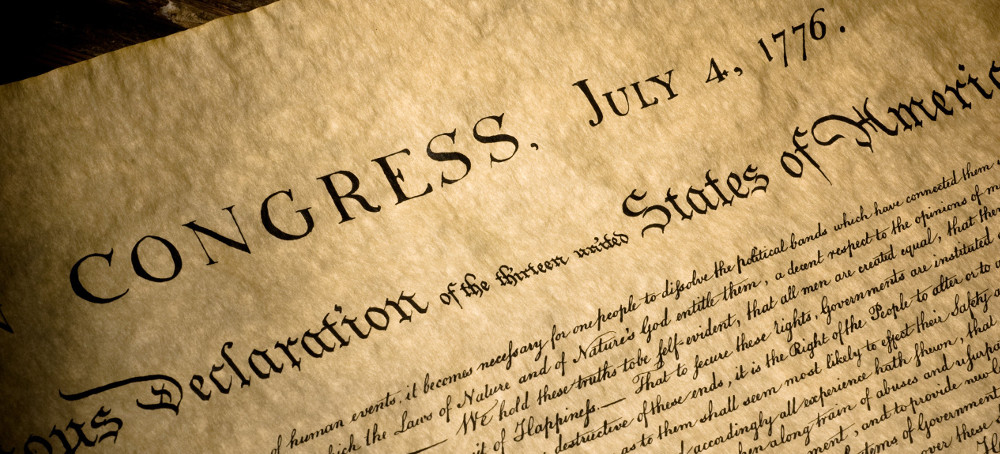 N CONGRESS, JULY 4, 1776.
ous Declaration of the thirteen united States of Americ
of human events, it becomes neceſsary for one people to diſsolve the political bands which have connected them
hich the Laws of Nature and of Nature's God entitle them, a decent respect to the opinions of m
— We hold these truths to be ſelf-evident, that all men are created equal, that the
it of Happineſs.— That to ſecure these rights, Governments are instituted
destructive of these ends, it is the Right of the People to alter or to a
as to them shall seem most likely to effect their Safety
accordingly all experience hath shewn, that
hen a long train of abuses and usurpa
ment, and to provide new
tems of Government
over these